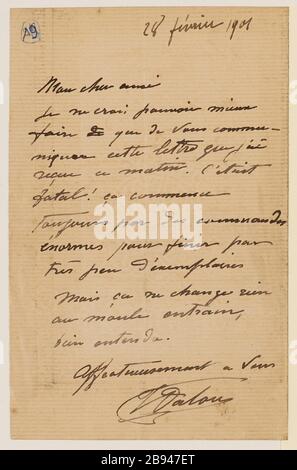 A9
28 février 1901
Mon cher ami
Je ne crois pouvoir mieux
faire que de vous commu-
niquer cette lettre que j'ai
reçue ce matin. C'était
fatal! ça commence
toujours par des commandes
énormes pour finir par
très peu d'exemplaires
Mais ça ne change rien
au moule entrain,
bien entendu.
Affectueusement à vous
J Dalou
alamy
Image ID: 2B947ET
www.alamy.com